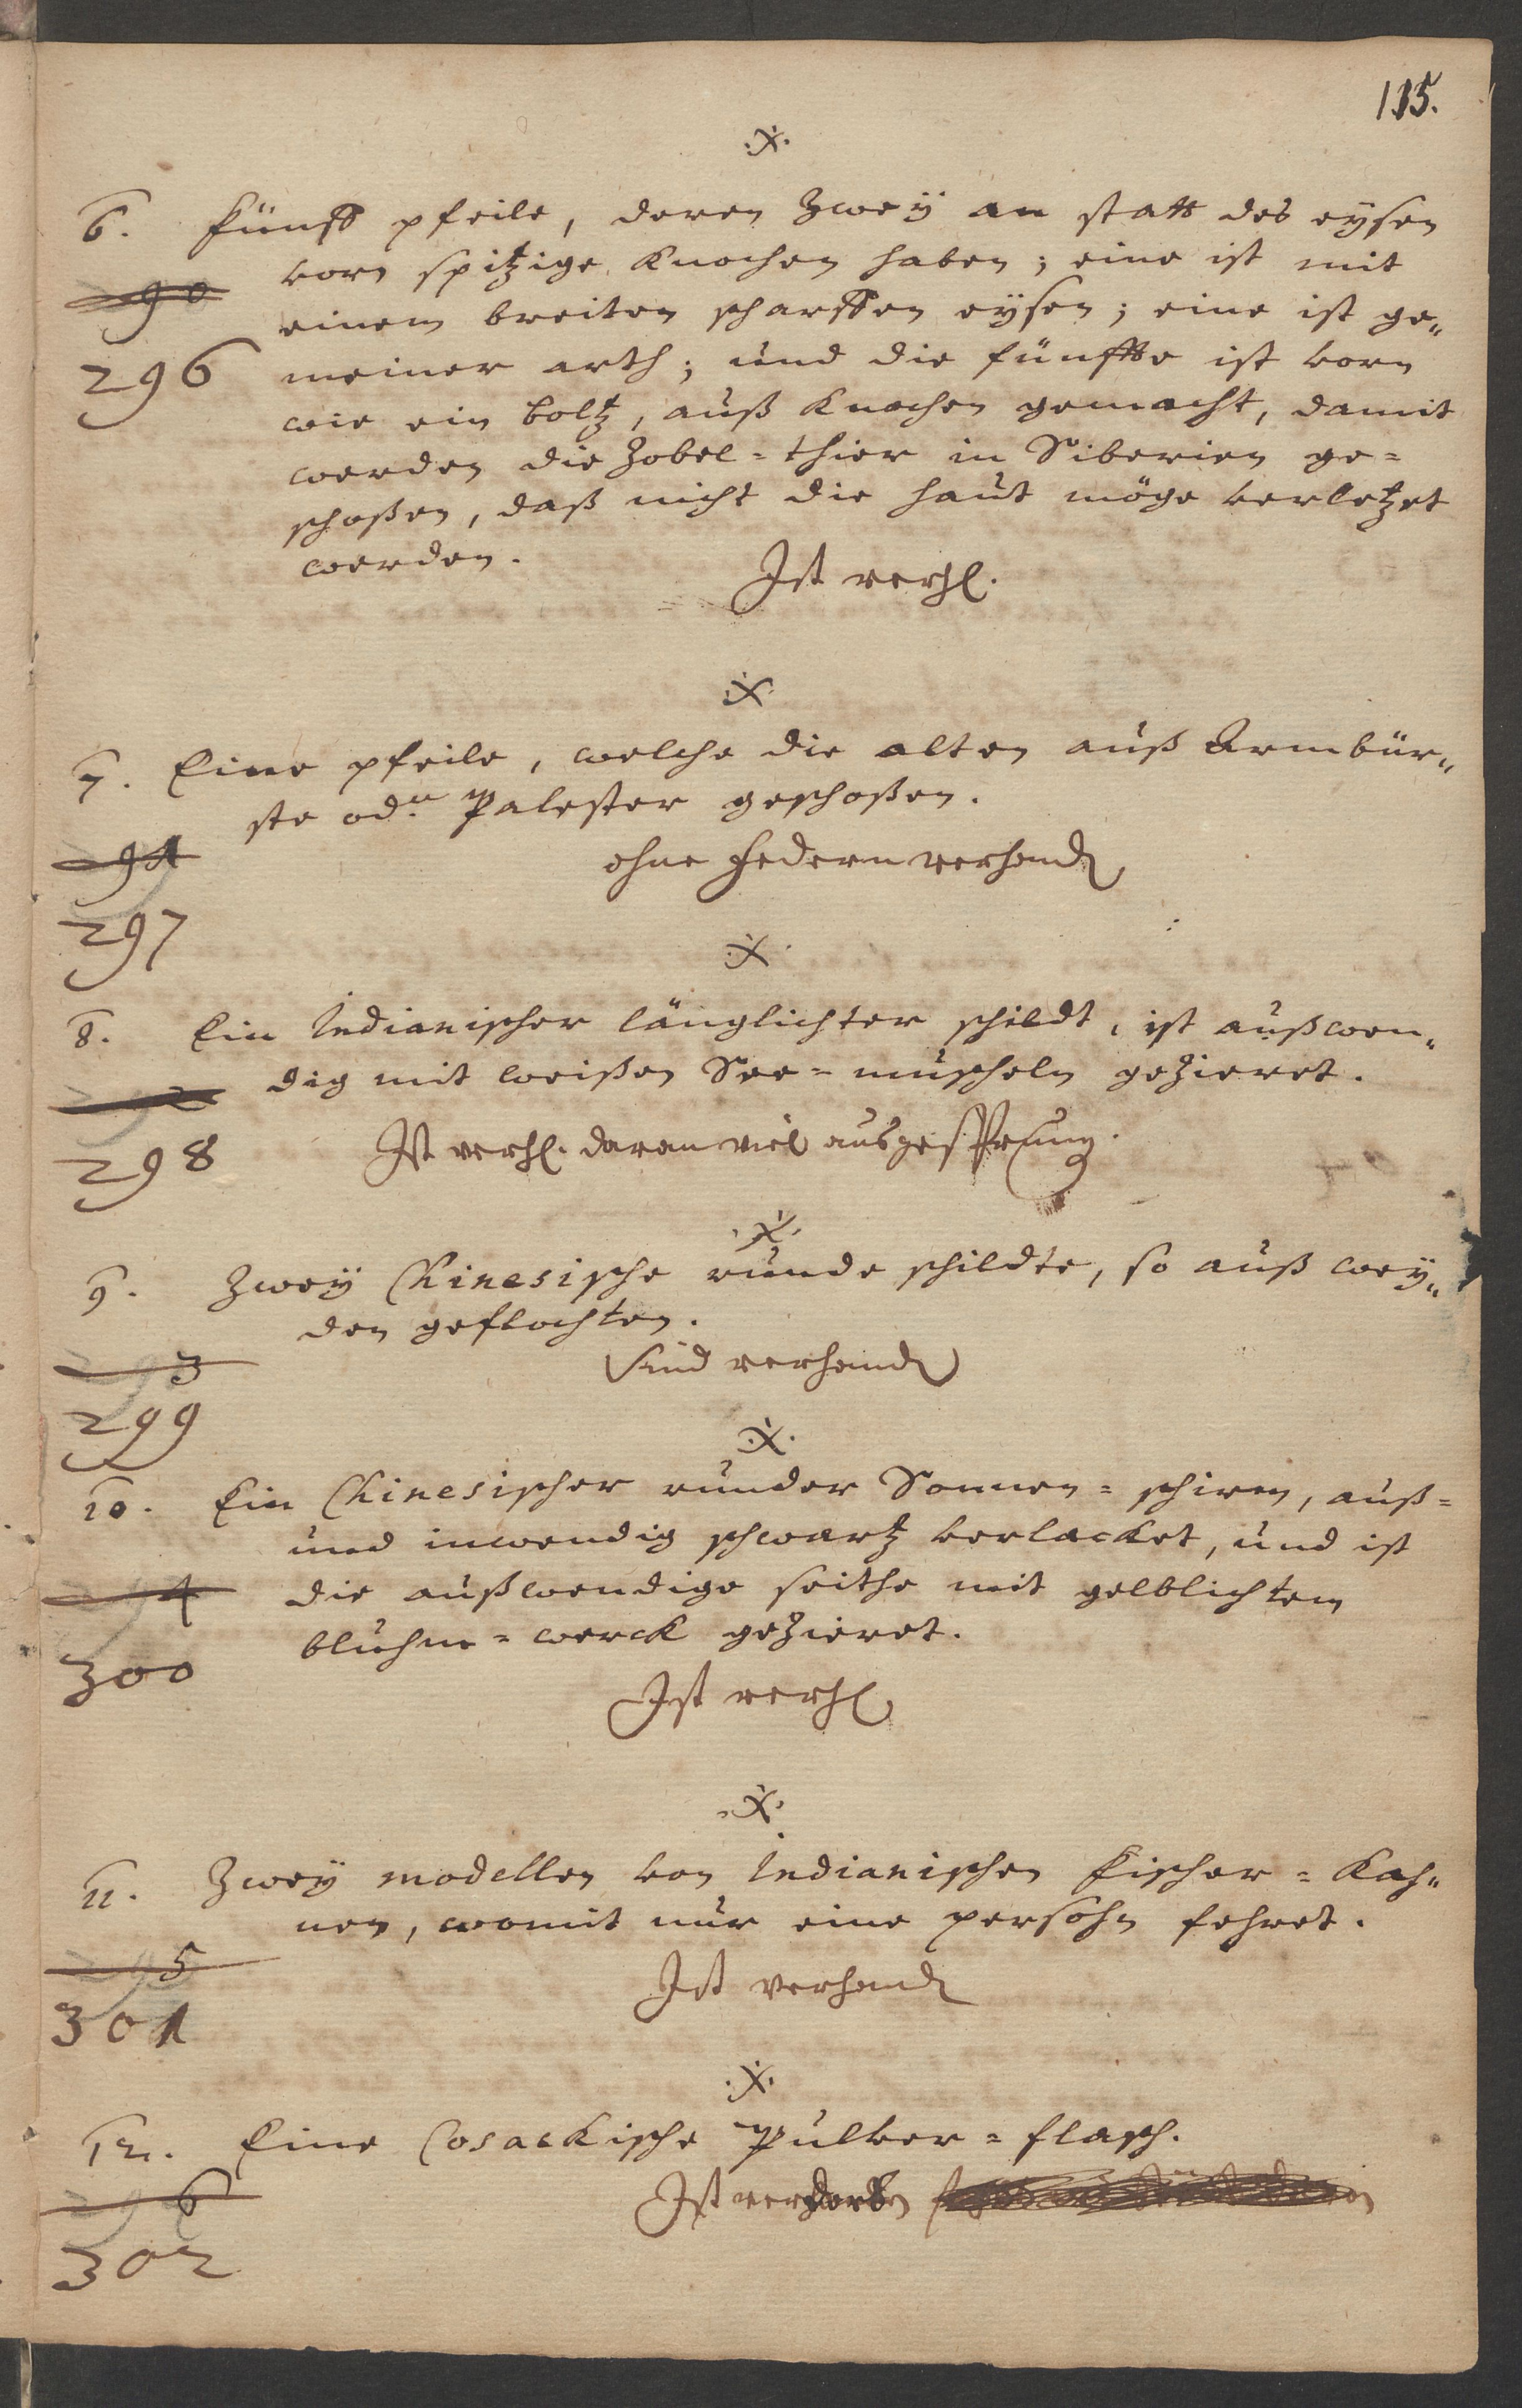 115.
6. Fünff pfeile, deren zweÿ an statt des eÿsen
290
vorn spitzige Knochen haben; eine ist mit
einem breiten scharffen eÿsen; eine ist ge„
296
meiner arth; und die fünffte ist vorn
wie ein boltz, auß Knochen gemacht, damit
werden die Zobel=thier in Siberien ge=
schoßen, daß nicht die haut möge verletzet
werden.
Ist verh.
7. Eine pfeile, welche die alten auß Armbür„
ste od. Palester geschoßen.
291
ohne Federn verhand
297
8. Ein Indianischer länglichter schildt, ist außwen„
292
dig mit weißen See=muscheln gezieret.
298
Ist verh. daran viel ausgesprung.
9. Zweÿ Chinesische runde schildte, so auß weÿ„
den geflochten.
293
Sind verhand
299
10. Ein Chinesischer runder Sonnen=schirm, auß=
und inwendig schwartz verlacket, und ist
294
die außwendige seithe mit gelblichtem
300
bluhm=werck gezieret.
Ist verh
11. Zweÿ modellen von Indianischen Fischer=Kah„
nen, womit nur eine persohn fehret.
295
Ist verhand
301
12. Eine Cosackische Pulver=flasch.
296
Ist verdorben
302